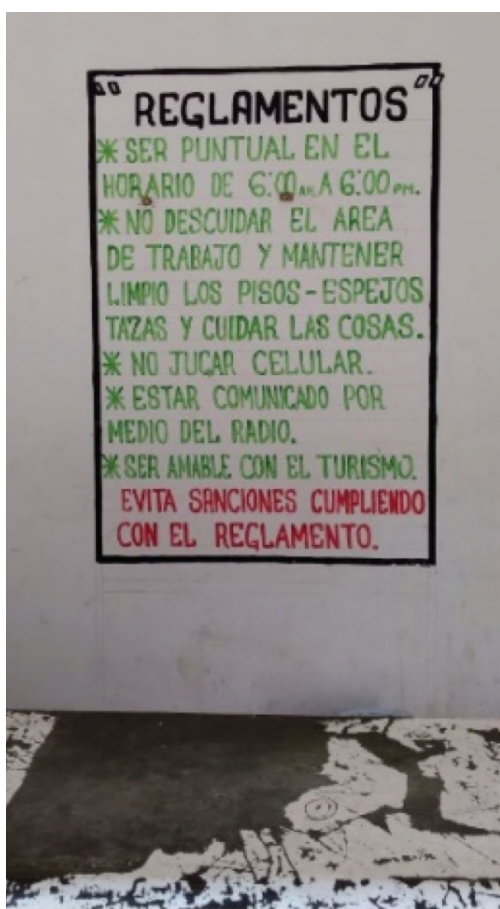 "REGLAMENTOS"
* SER PUNTUAL EN EL
HORARIO DE 6:00 AM. A 6:00 PM.
* NO DESCUIDAR EL AREA
DE TRABAJO Y MANTENER
LIMPIO LOS PISOS - ESPEJOS
TAZAS Y CUIDAR LAS COSAS.
* NO JUGAR CELULAR.
* ESTAR COMUNICADO POR
MEDIO DEL RADIO.
* SER AMABLE CON EL TURISMO.
EVITA SANCIONES CUMPLIENDO
CON EL REGLAMENTO.